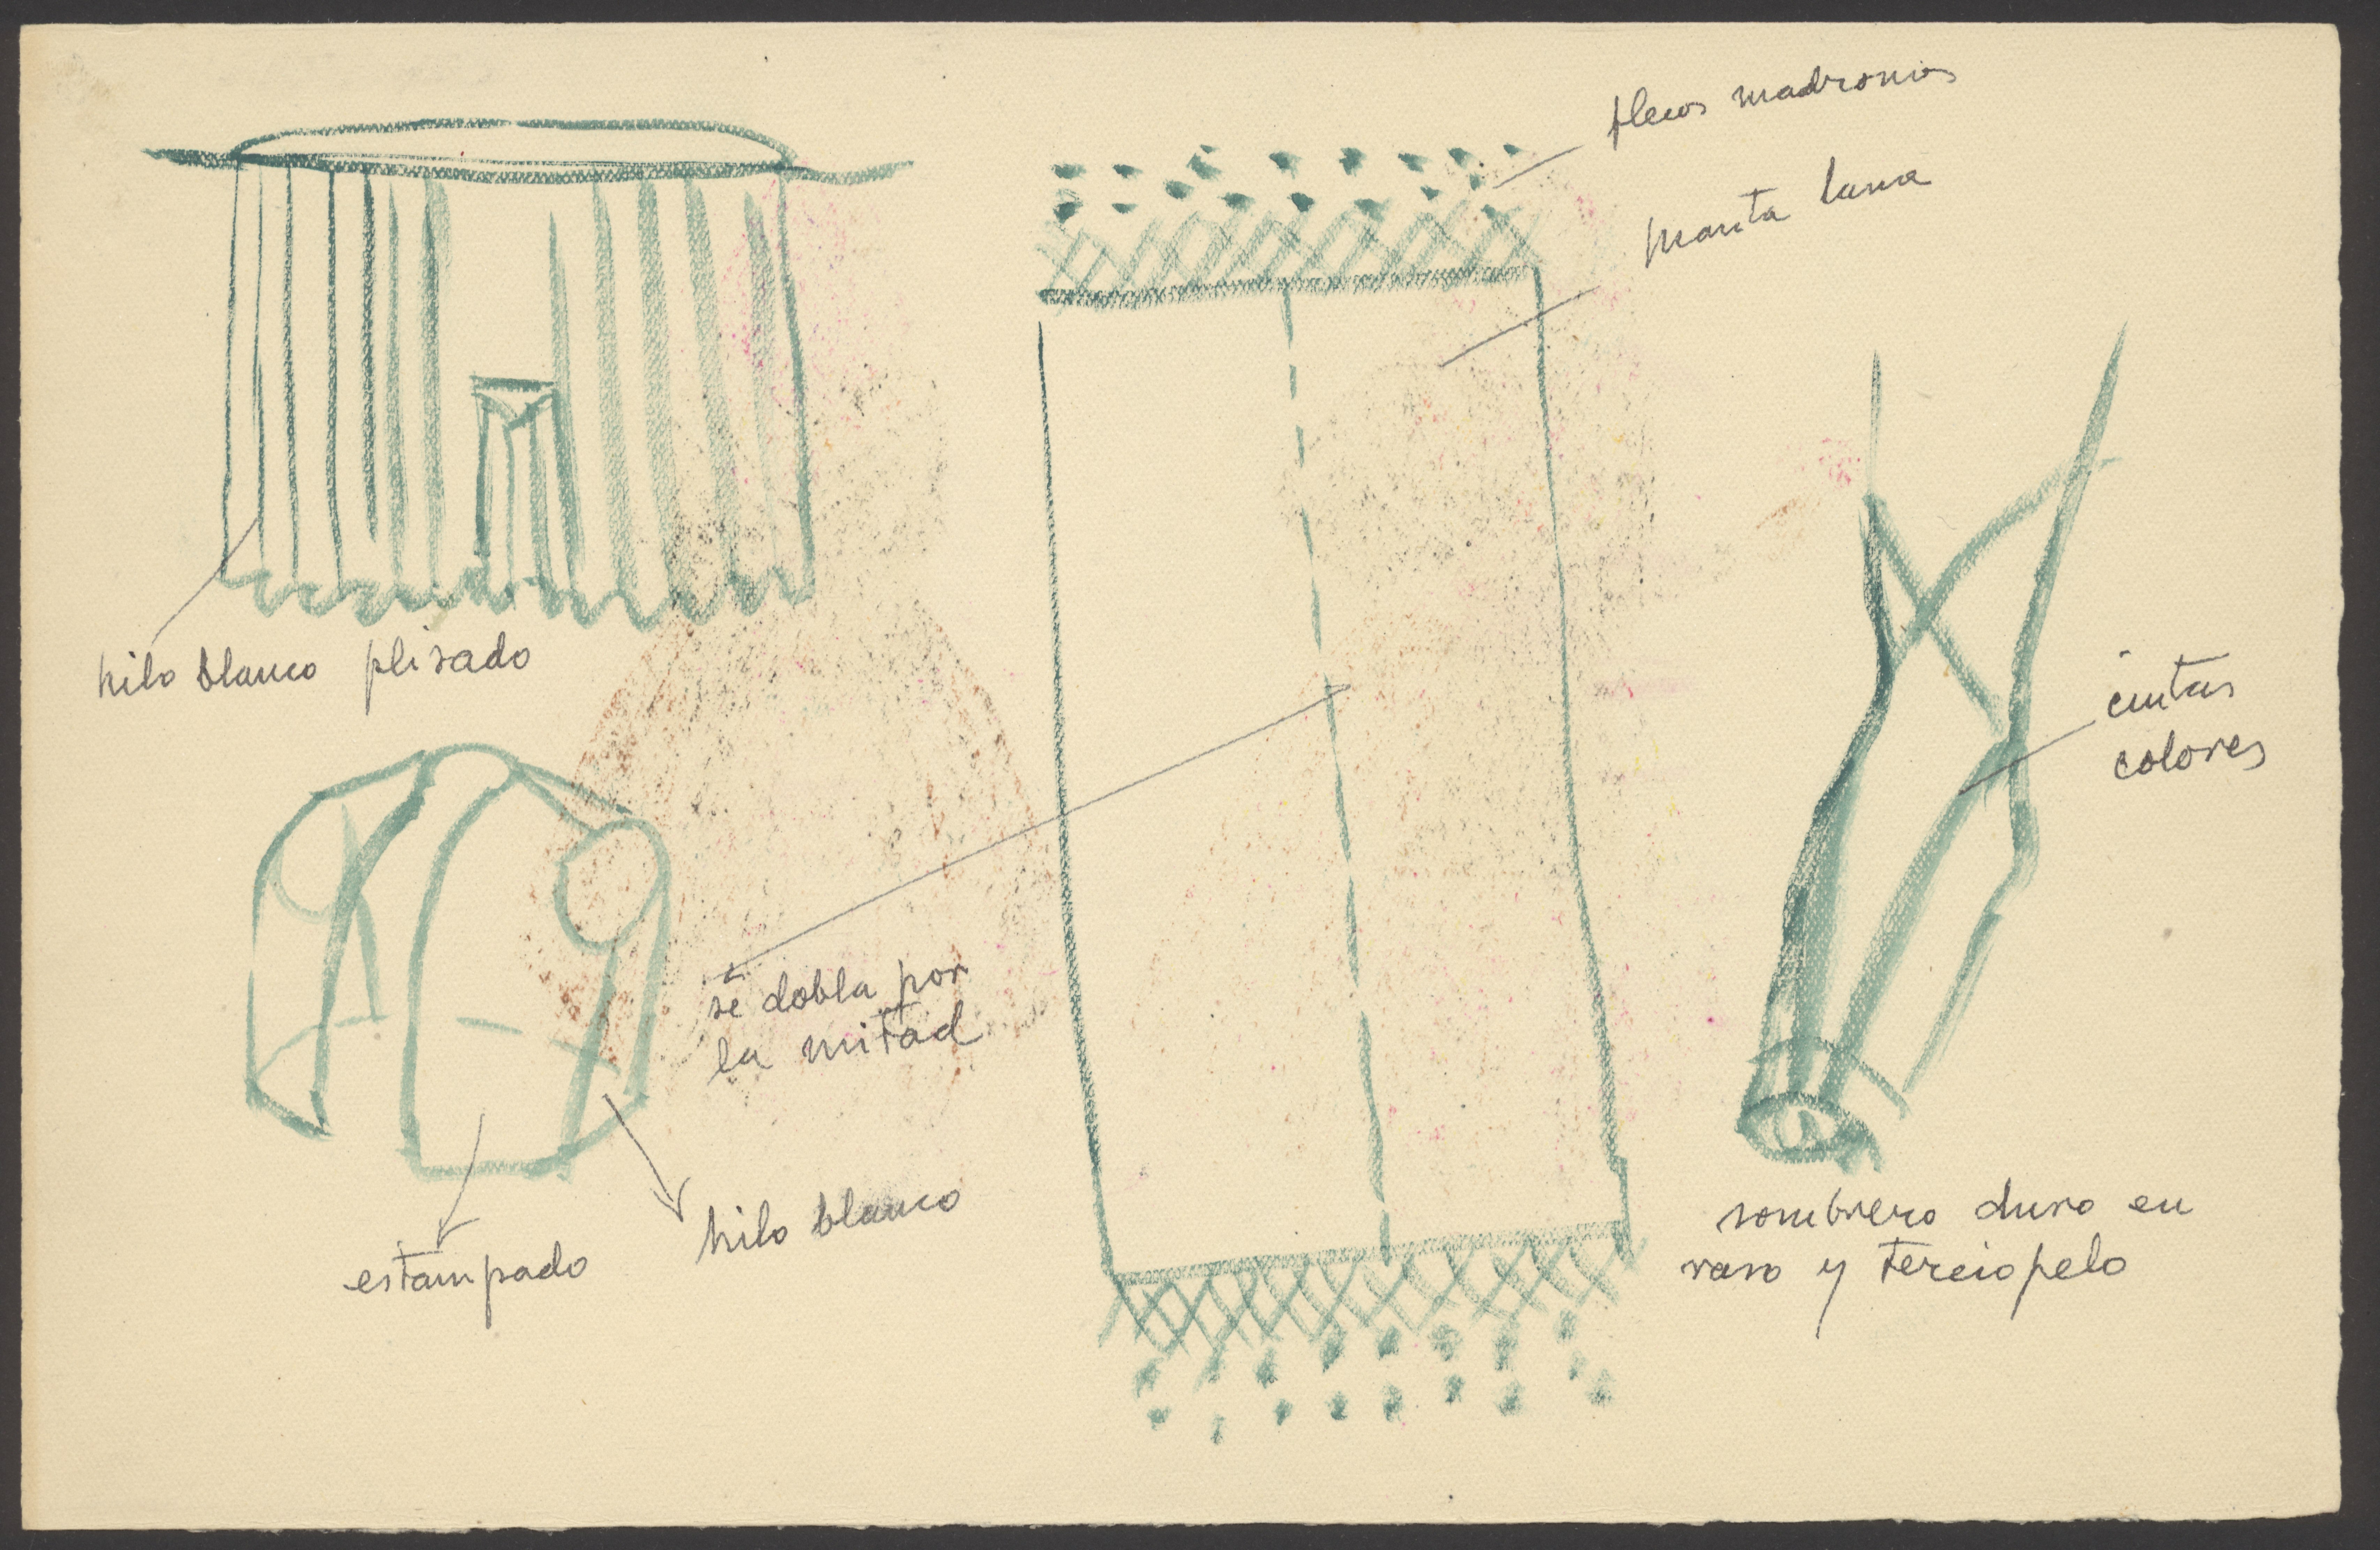 flecos madronios
manta lana
hilo blanco plisado
cintas
colores
se dobla por
la mitad
hilo blanco
estampado
sombrero duro en
raso y terciopelo